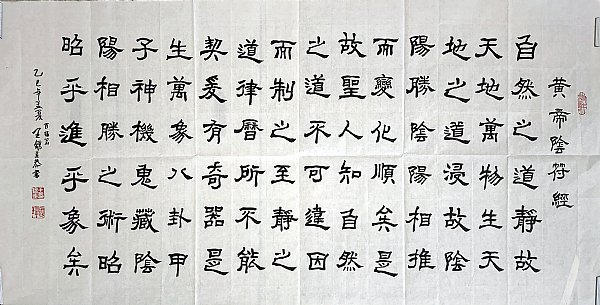 黃帝陰符經
自然之道靜故
天地萬物生天
地之道浸故陰
陽勝陰陽相推
而變化順矣是
故聖人知自然
之道不可違因
而制之至靜之
道律曆所不能
契爰有奇器是
生萬象八卦甲
子神機鬼藏陰
陽相勝之術昭
昭乎進乎象矣
乙巳年孟夏